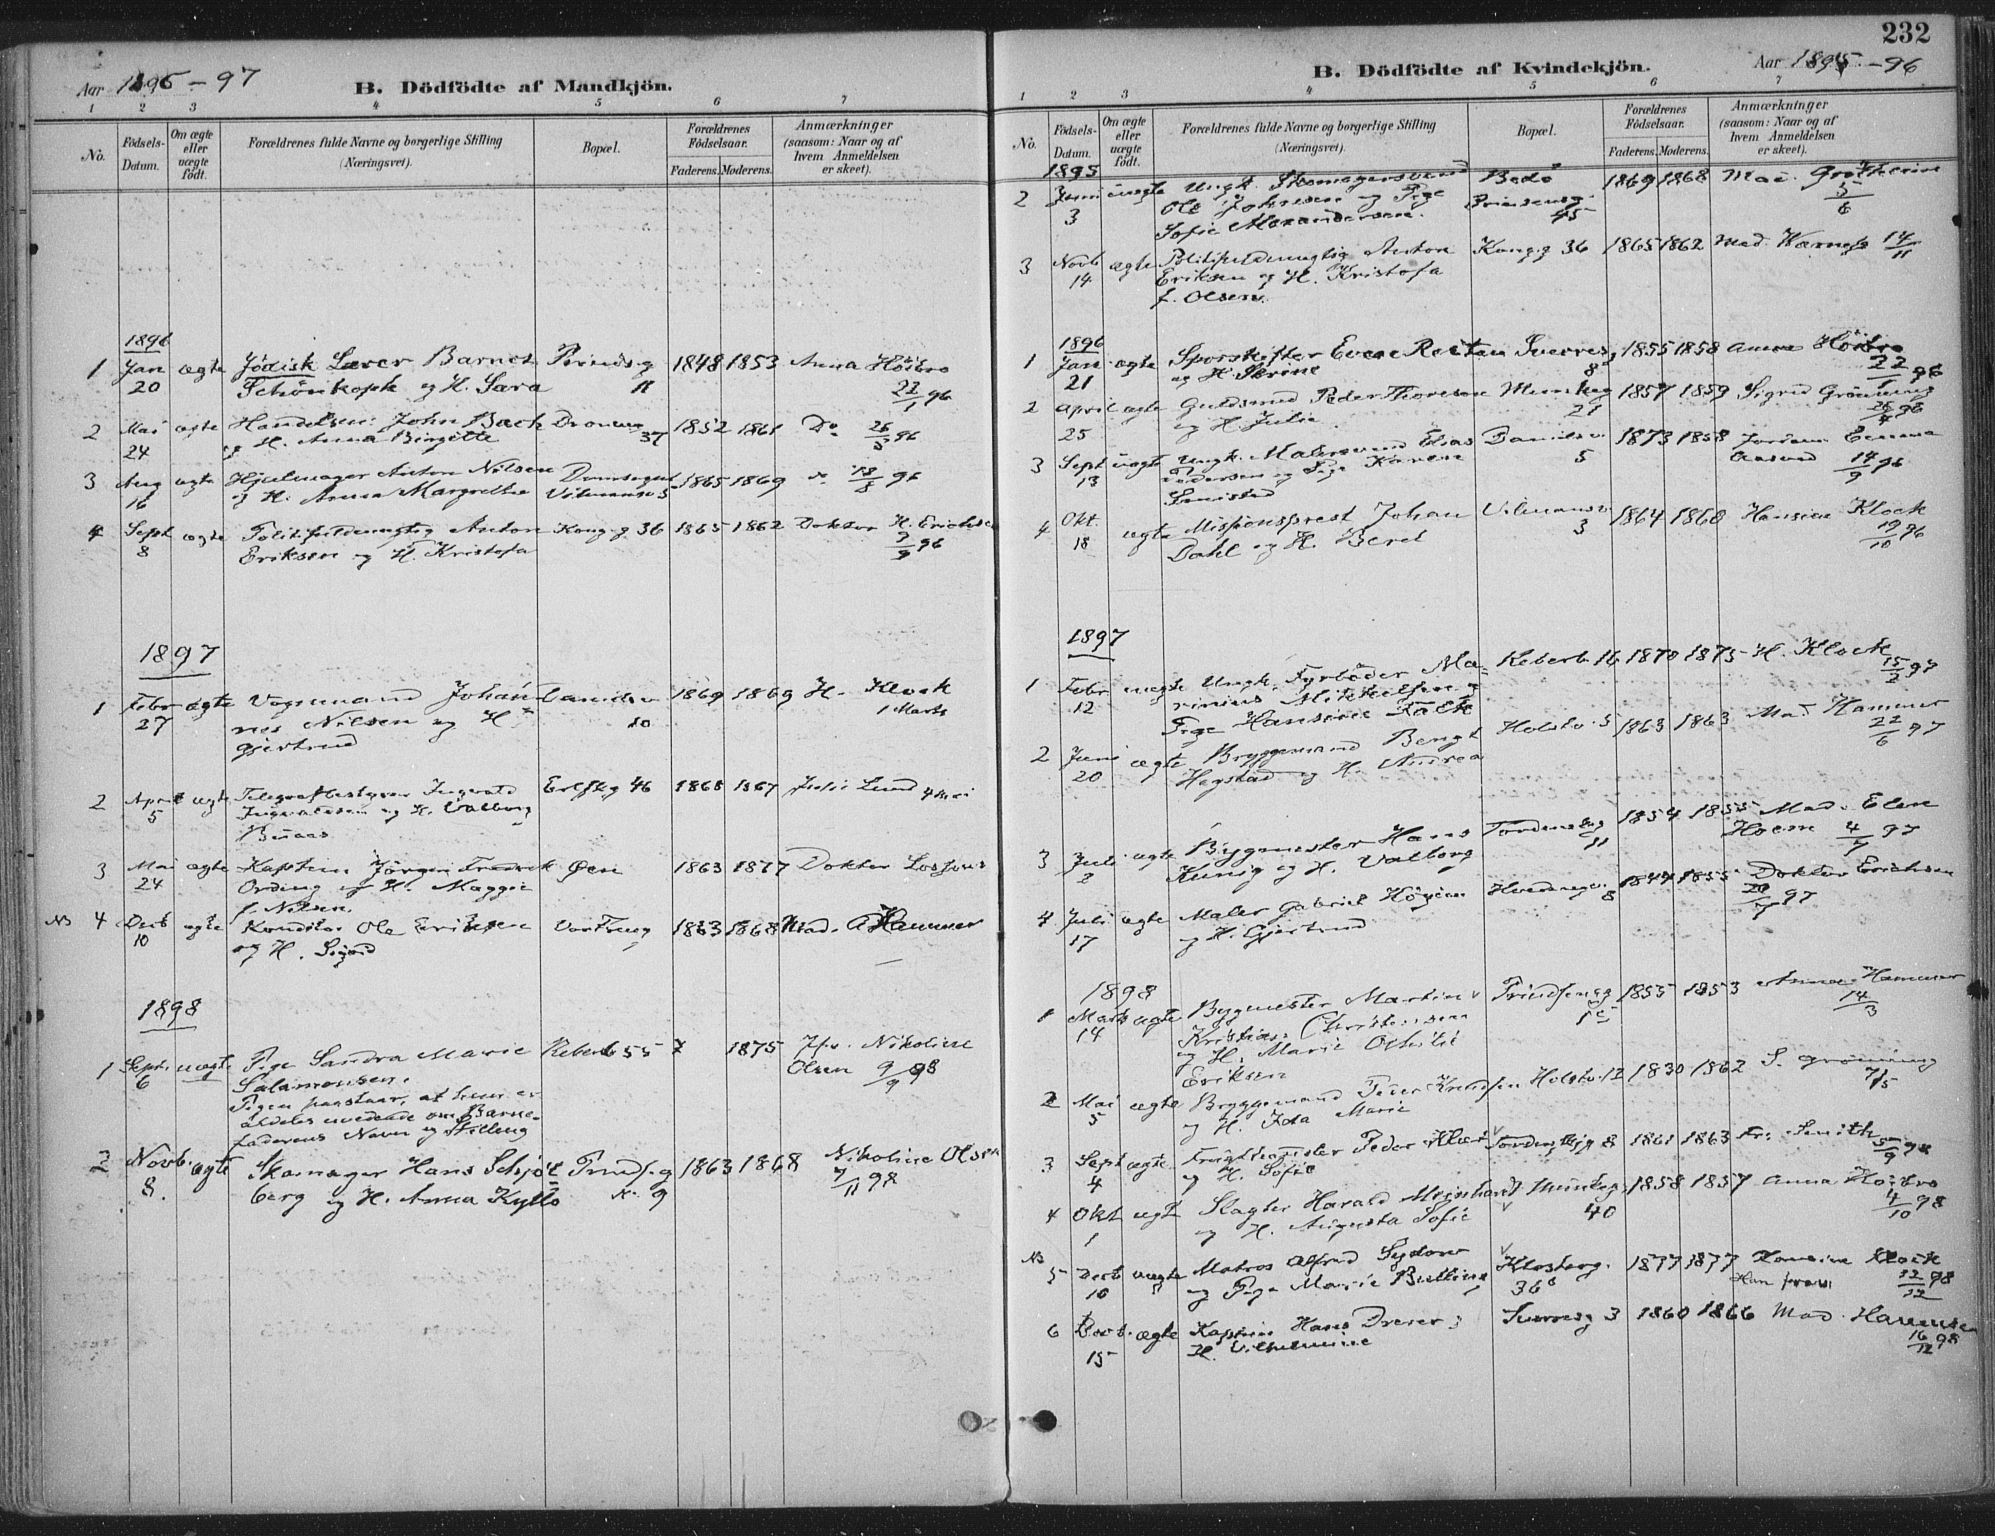 232
Aar 1896-97
B. Dödfödte af Mandkjön.
1 2 3 4 5 6 7
No.
Födsels-Datum.
Om ægte eller uægte födt.
Forældrenes fulde Navne og borgerlige Stilling (Næringsvei).
Bopæl.
Forældrenes Födselsaar.
Faderens. Moderens.
Anmærkninger (saasom: Naar og af hvem Anmeldelsen er skeet).
1896
1 Jan ægte Jødisk Lærer Barnet Prinds.g 1848 1853 Anna Höibro
20 Schönkoph og H. Sara 11 22/1 96
2 Mai ægte Handelsm. John Bach Dronn 1852 1861 Do 26/5 96
24 og H. Anna Birgitte 37
3 Aug ægte Hjulmager Anton Nilsen 1865 1869 18/8 96
16 og H. Anna Margrethe
4 Sept ægte Politifuldmægtig Anton Kong.g 36 1865 1862 Doktor H. Erichsen
8 Eriksen og H. Kristofa 9/9 96
1897
1 Febr ægte Vognmand Johan- 1869 1869 H. Klock
27 nes Nilsen og H 10 1 Marts
Gjertrud
2 April ægte Telegrafbestyrer Ingvald Erlfkg 46 1868 1867 Julie Lund 4 Mai
5 og H. Valborg
Buaas
3 Mai ægte Kaptein Jörgen Fredrik Øen 1863 1877 Doktor
24 Ording og H. Maggie
f. Nilsen.
NB 4 Decb ægte Konditor Ole Eriksen 1863 1868 Mad. Hammer
10 og H. Sigrid
1898
1 Sept. uægte Pige Sandra Marie Reberb 55 ? 1875 Nikoline
6 Salamonsen. Olsen 9/9 98
Pigen paastaar, at hun er
aldeles uvidende om Barne-
faderens Navn og Stilling
2 Novb. ægte Skomager Hans Schjöt Prinds.g 1863 1868 Nikoline Olsen
8. berg og H. Anna Kyllo No. 9 7/11 98
B. Dödfödte af Kvindekjön.
Aar 1895-96
1 2 3 4 5 6 7
No.
Födsels-Datum.
Om ægte eller uægte födt.
Forældrenes fulde Navne og borgerlige Stilling (Næringsvei).
Bopæl.
Forældrenes Födselsaar.
Faderens. Moderens.
Anmærkninger (saasom: Naar og af hvem Anmeldelsen er skeet).
1895
2 Juni uægte Ungk. Skomagersvend Bodö 1869 1868
3 Ole Johnsen og Pige Prinsensg. 5/6
Sofie 45
3 Novb ægte Politifuldmægtig Anton Kong.g 36 1865 1862 Mad. 14/11
14 Eriksen og H. Kristofa
f. Olsen.
1896
1 Jan ægte Sporskifter Even Reitan Sverresg 1855 1858 Anna Höibro
21 og H. Serine 8 22/1 96
2 April ægte Guldsmed Peder Thoresen Munkeg 1857 1859 Sigrid Gröning
25 og H. Julie 21 26/4 96
3 Sept uægte Ungk. Malersvend Elias 1873 1858 Jordem. Emma
13 Pedersen og Pige Karen 5 14/9 96
4 Okt. ægte Missionsprest Johan 1864 1868 Hansine Klock
18 Dahl og H. Beret 3 19/10 96
1897
1 Febr uægte Ungk. Fyrböder Ma- Reberb 16 1870 1875 H. Klock
12 rinius Mikkelsen og 15/2 97
Pige Hansine Falk
2 Juni ægte Bryggemand Bengt Holstv. 5 1863 1863 Mad Hammer
20 Hegstad og H. Andrea 22/6 97
3 Juli ægte Bygmester Hans Tordenskg 1854 1855 Mad. Elen
2 Kunig og H. Valborg 11 Hoem 4/7 97
4 Juli ægte Maler Gabriel 1855 Doktor Erichsen
17 og H. Gjertrud 8 20/7 97
1898
1 Marts ægte Bygmester Martin Prindseng 1855 1853 Anna Hammer
14 Kristian Christensen 14/3
og H. Marie Othilie
Eriksen
2 Mai ægte Bryggemand Peter Knudsen Holstv. 12 1830 1862 S. Gröning
5 og H. Ida Marie 7/5
3 Sept ægte Peder 8 1861 1863 Fr. Smith
4 og H. Sofie 5/9 98
4 Okt ægt Slagter Harald Meinhard Munkeg. 1858 1857 Anna Höibro
1 og H. Augusta Sofie 40 4/10 98
NB
5 Decb uægte Matros Alfred Klosterg. 1877 1877 Hansine Klock
10 og Pige Marie 36b 12/12 98
6 Decb. ægte Kaptein Hans Dreier Sverresg 3 1860 1866 Mad. Hammer
15 H. Vilhelmine 16/12 98